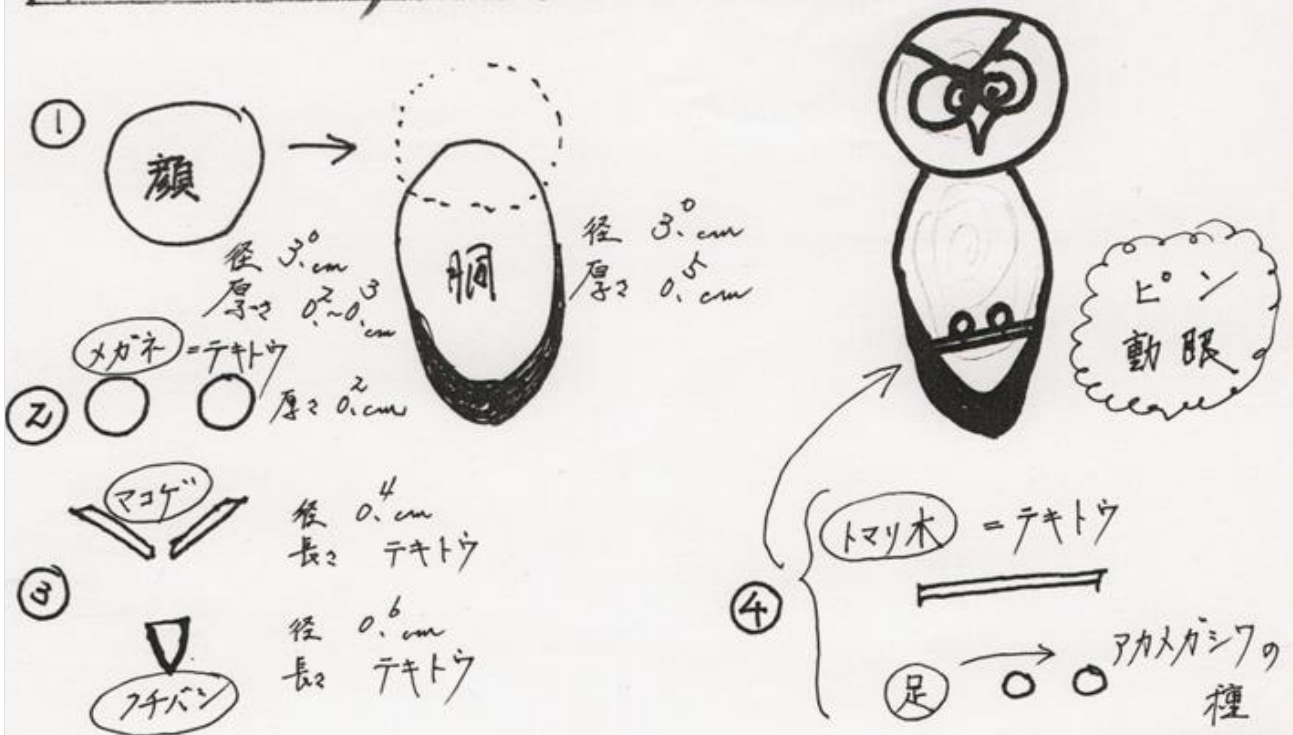 ①
顔
径 3.0cm
厚さ 0.2~0.3cm
胴
径 3.0cm
厚さ 0.5cm
②
メガネ=テキトウ
厚さ 0.2cm
③
マユゲ
径 0.4cm
長さ テキトウ
クチバシ
径 0.6cm
長さ テキトウ
ピン
動眼
④
トマリ木 = テキトウ
足
アカメガシワの
種